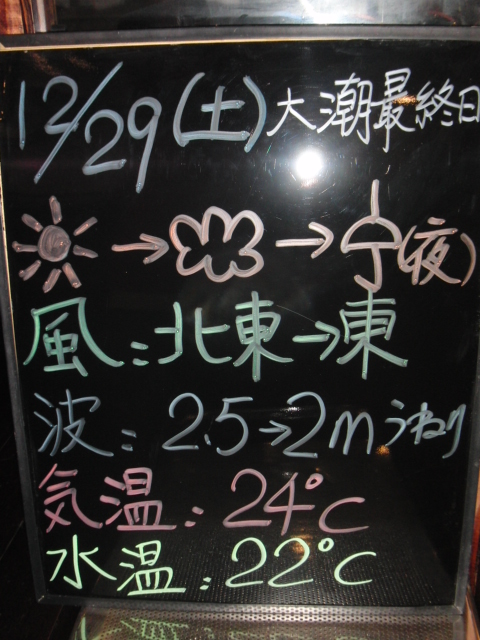 12/29(土)大潮最終日
→ → (夜)
風:北東→東
波:2.5→2mうねり
気温:24℃
水温:22℃